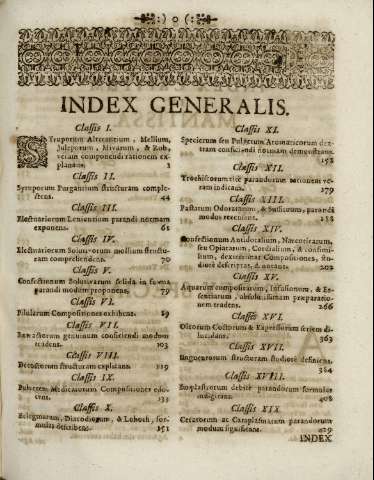 :) o (:
INDEX GENERALIS.
Classis I.
SYruporum Alterantium, Mellium,
Juleporum, Mivarum, & Rob,
veram componendi rationem ex-
planans. 1
Classis II.
Syruporum Purgantium structuram comple-
ctens. 44
Classis III.
Electuariorum Lenientium parandi normam
exponens. 61
Classis IV.
Electuariorum Solutivorum mollium structu-
ram comprehendens. 70
Classis V.
Confectionum Solutivarum solida in forma
parandi modum proponens. 79
Classis VI.
Pilularum Compositiones exhibens. 89
Classis VII.
Extractorum genuinum conficiendi modum
tradens. 103
Classis VIII.
Decoctorum structuram explicans. 119
Classis IX.
Pulverum Medicatorum Compositiones edo-
cens. 133
Classis X.
Eclegmatum, Diacodiorum, & Lohoch, for-
mulas describens. 151
Classis XI.
Specierum seu Pulverum Aromaticorum dex-
tram conficiendi normam demonstrans.
158
Classis XII.
Trochiscorum ritè parandorum rationem ve-
ram indicans. 179
Classis XIII.
Pastarum Odoratarum, & Suffituum, parandi
modos recensens. 188
Classis XIV.
Confectionum Antidotalium, Narcoticarum,
seu Opiatarum, Cordialium, & consimi-
lium, dexteritatè Compositiones, stu-
diosè descriptas, & notans. 202
Classis XV.
Aquarum compositarum, Infusionum, & Es-
sentiarum, absolutissimam praeparatio-
nem tradens. 266
Classis XVI.
Oleorum Coctorum & Expressorum seriem di-
lucidans. 363
Classis XVII.
Unguentorum structuram studiosè definiens.
384
Classis XVIII.
Emplastrorum debitè parandorum formulas
indigitans. 408
Classis XIX.
Ceratorum ac Cataplasmatum parandorum
modum significans. 429
INDEX